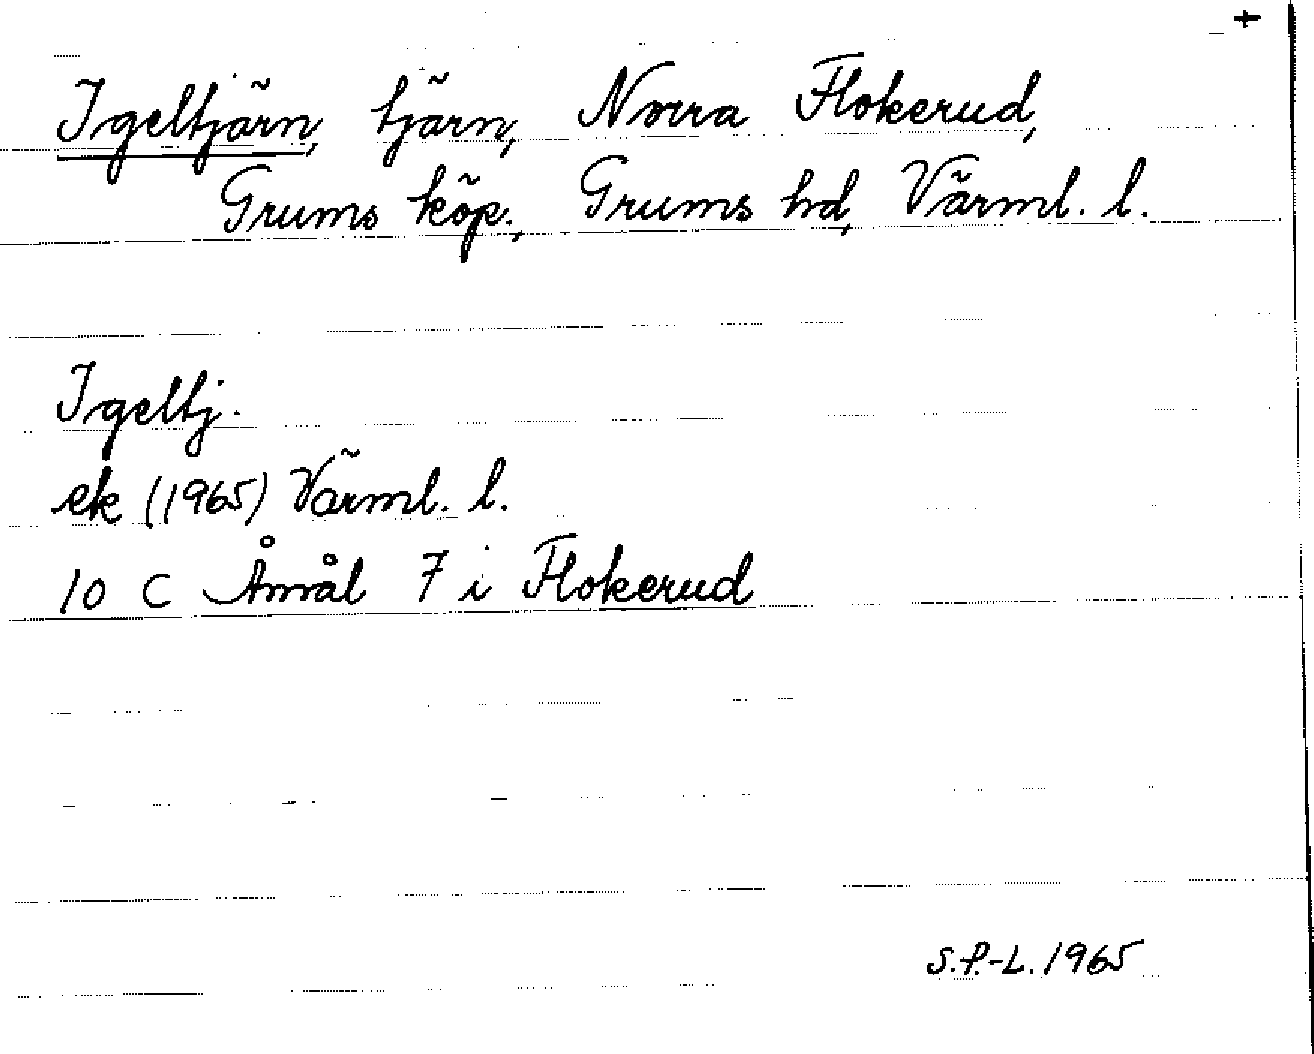 +
Igeltjärn, tjärn, Norra Flokerud,
Grums köp., Grums hd, Värml. l.
Igeltj.
ek (1965) Värml. l.
10 C Åmål 7 i Flokerud
S.P.-L. 1965